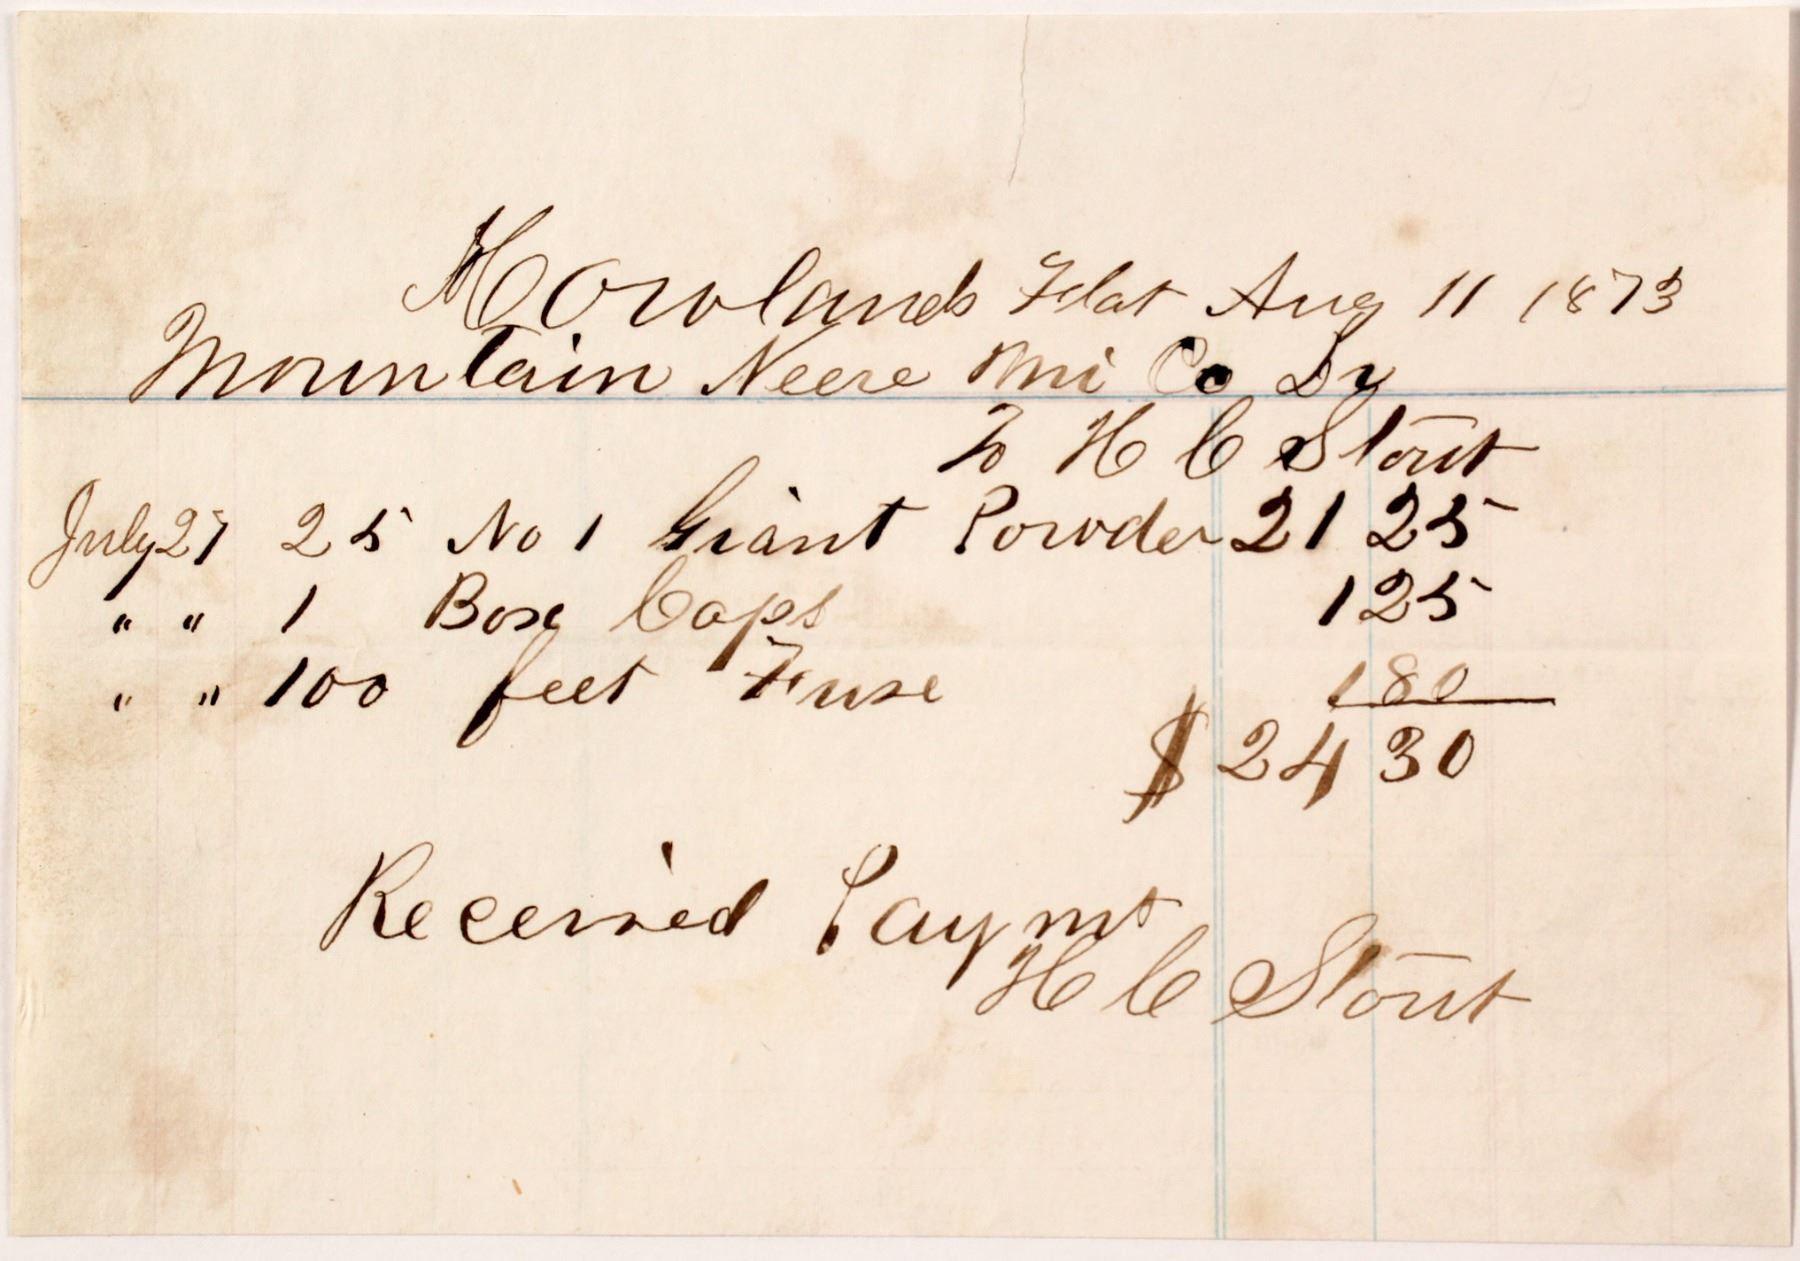 Howlands Flat Aug 11 1873
Mountain Neere Mni Co Dr
To H C Stout
July 27 25 No 1 Giant Powder 21 25
" " 1 Box Caps 1 25
" " 100 feet Fuse 1 80
$ 24 30
Received Paymt
H C Stout